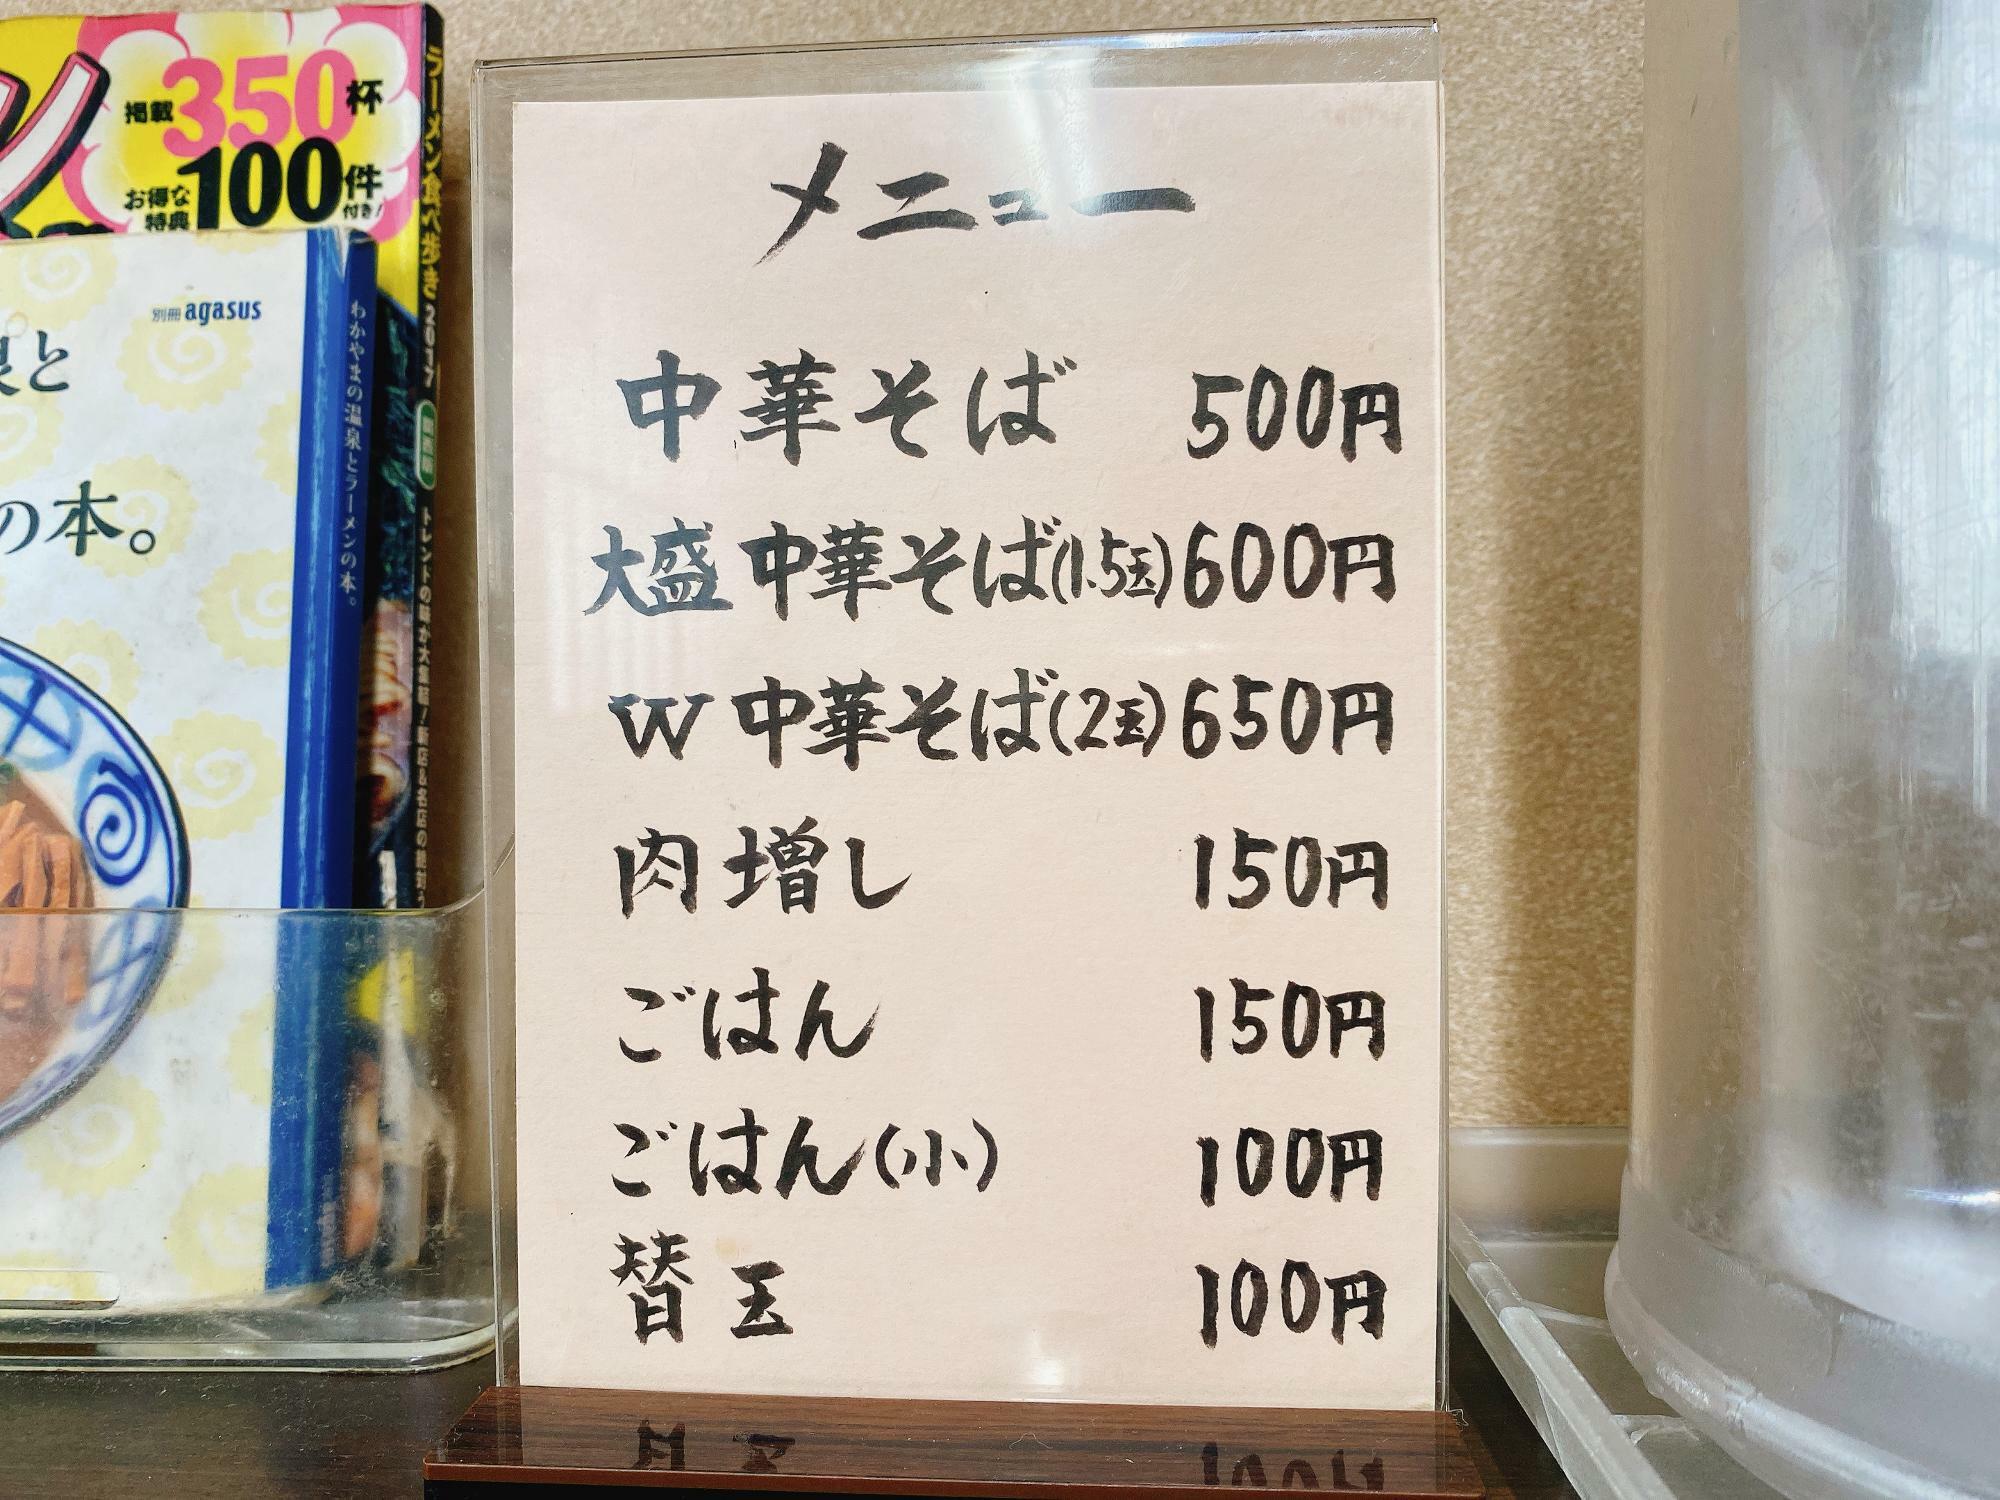 メニュー
中華そば 500円
大盛 中華そば(1.5玉) 600円
W 中華そば(2玉) 650円
肉増し 150円
ごはん 150円
ごはん(小) 100円
替玉 100円
掲載350杯
お得な特典100件付き!
ラーメン食べ歩き2017
別冊agasus
泉と
の本。
わかやまの温泉とラーメンの本。